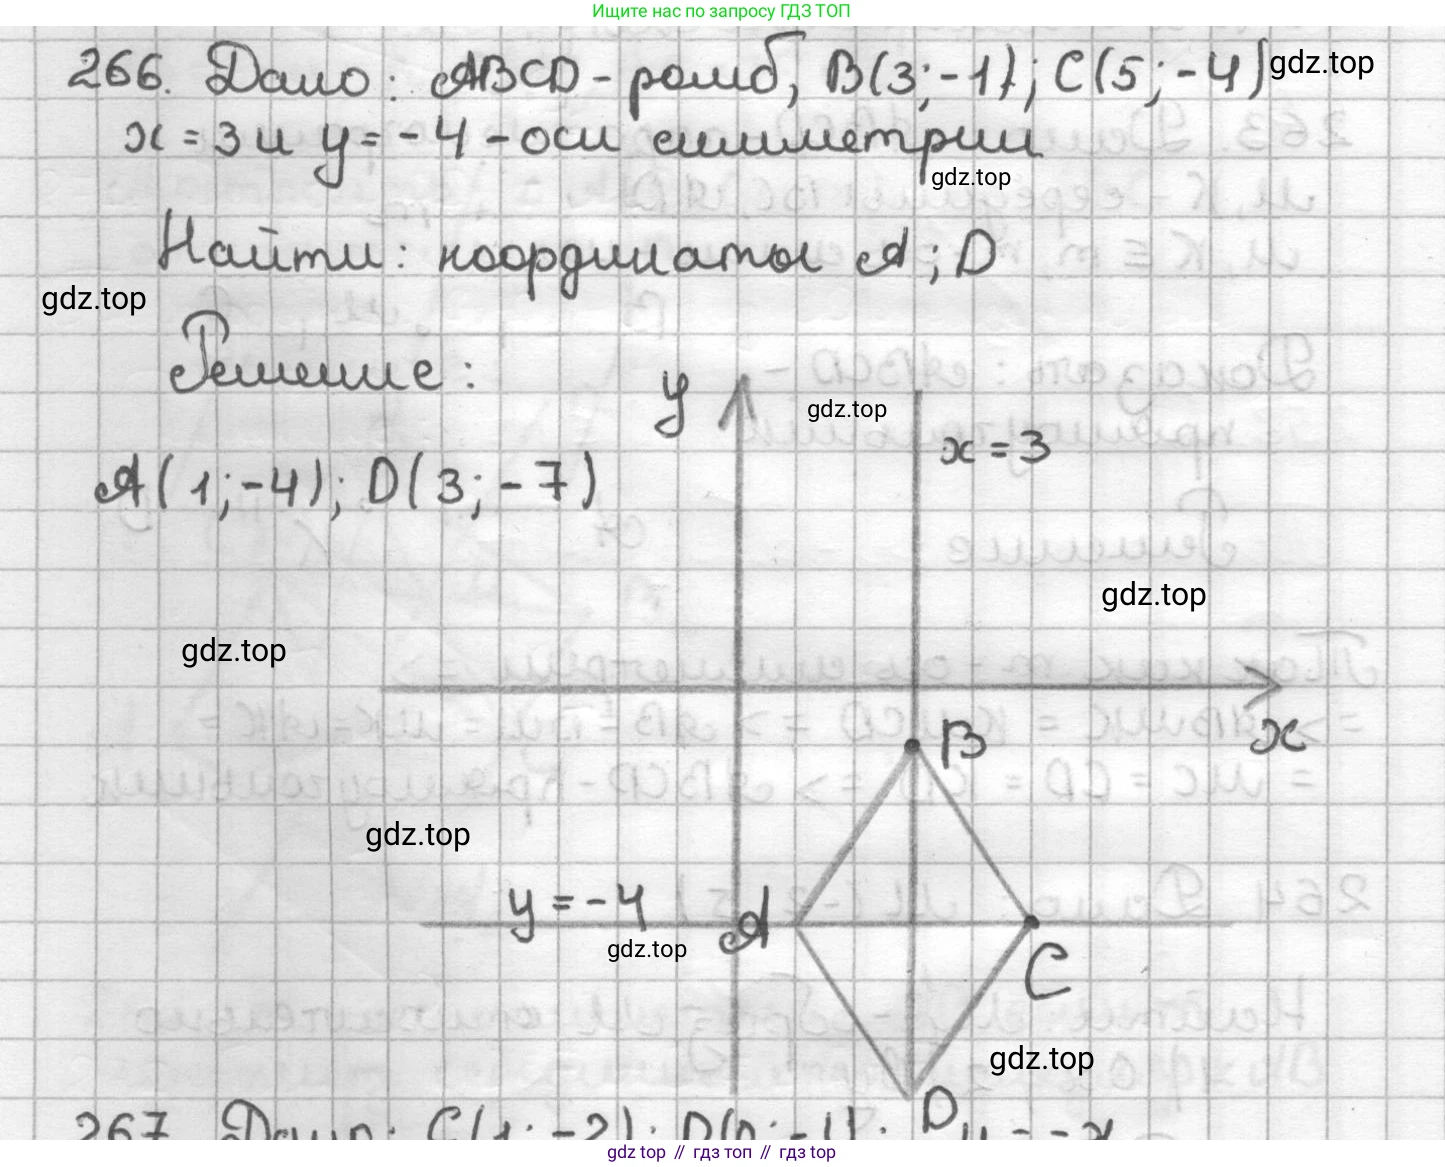 Ищите нас по запросу ГДЗ ТОП
266. Дано: ABCD - ромб, B(3;-1); C(5;-4)
gdz.top
x = 3 и y = -4 - оси симметрии
gdz.top
Найти: координаты A; D
gdz.top
Решение:
y
gdz.top
x = 3
A(1;-4); D(3;-7)
gdz.top
gdz.top
B
x
gdz.top
y = -4
A
gdz.top
C
gdz.top
D
267. Дано: C(1;-2); D(0;-1);
gdz top // гдз топ // gdz top